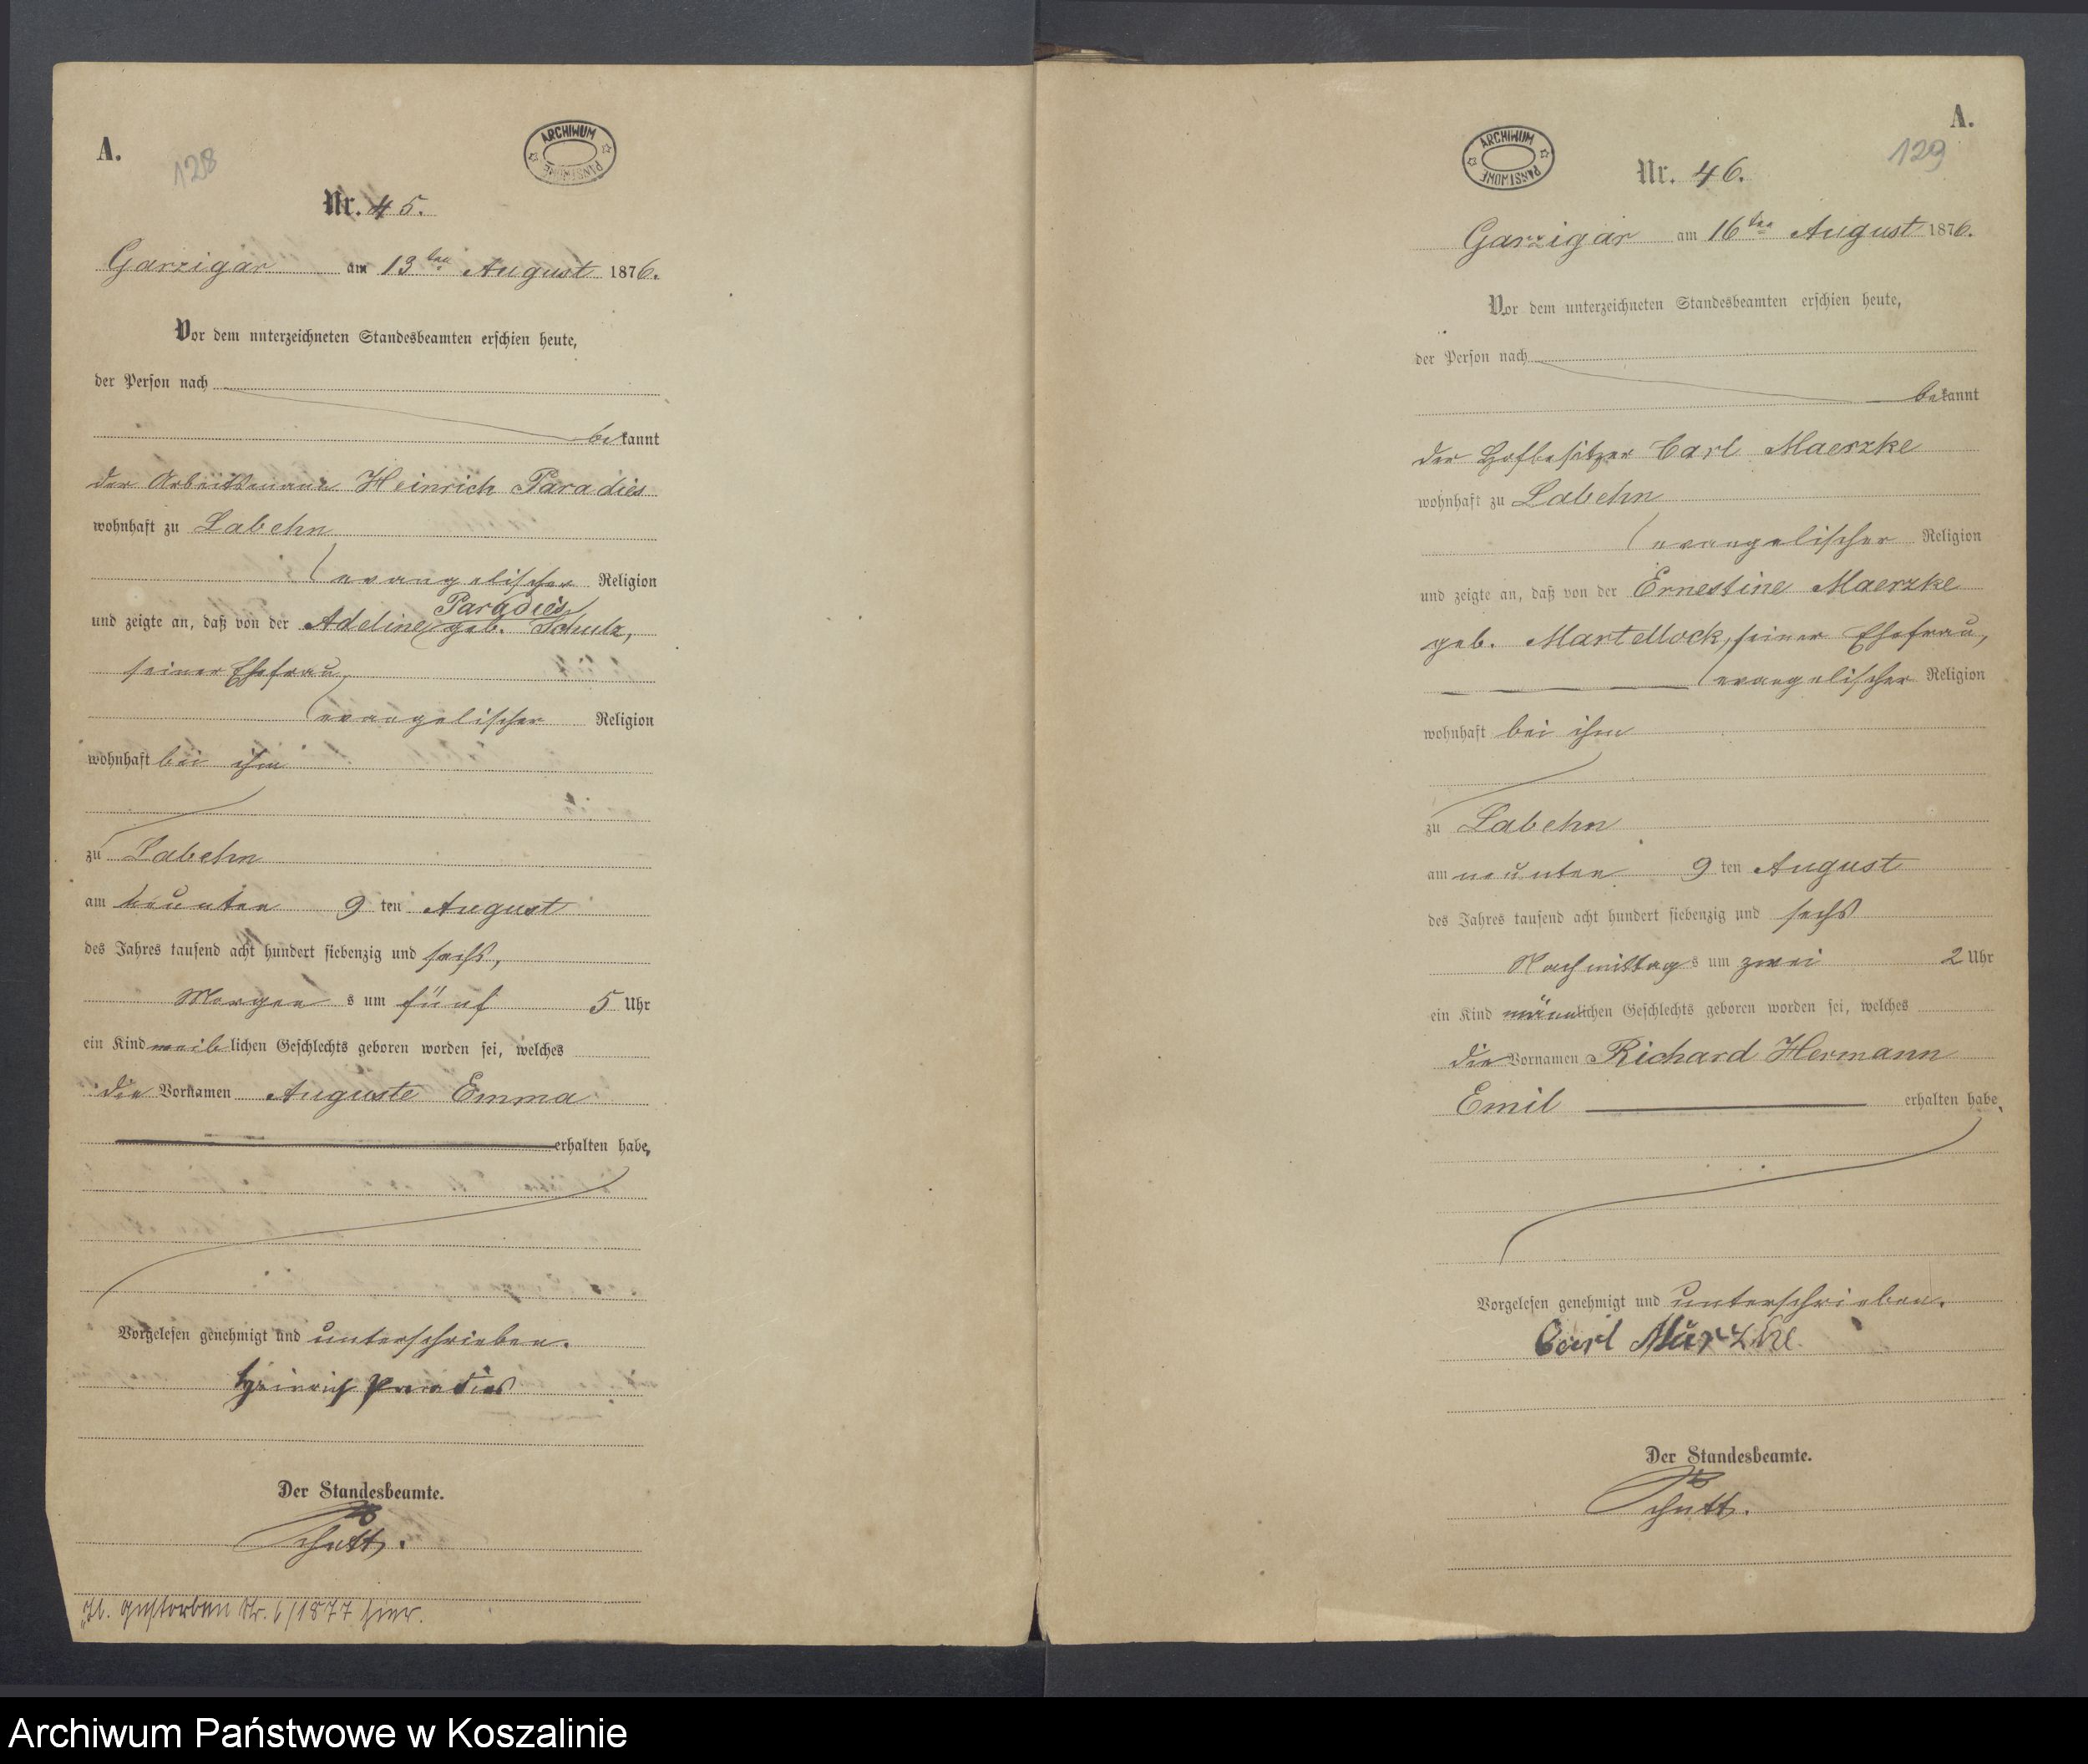 A.
128
ARCHIWUM PAŃSTWOWE
Nr. 45.
Garzigar am 13ten August 1876.
Vor dem unterzeichneten Standesbeamten erschien heute,
der Person nach
bekannt
der Arbeitsmann Heinrich Paradies
wohnhaft zu Labehn
evangelischer Religion
Paradies
und zeigte an, daß von der Adeline geb. Schulz,
seiner Ehefrau,
evangelischer Religion
wohnhaft bei ihm
zu Labehn
am neunten 9 ten August
des Jahres tausend acht hundert siebenzig und sechs,
Morgens um fünf 5 Uhr
ein Kind weiblichen Geschlechts geboren worden sei, welches
die Vornamen Auguste Emma
erhalten habe,
Vorgelesen genehmigt und unterschrieben.
Heinrich Paradies
Der Standesbeamte.
Schütt.
gestorben Nr. 6/1877 hier.
A.
129
ARCHIWUM PAŃSTWOWE
Nr. 46.
Garzigar am 16ten August 1876.
Vor dem unterzeichneten Standesbeamten erschien heute,
der Person nach
bekannt
der Hofbesitzer Carl Maerzke
wohnhaft zu Labehn
evangelischer Religion
und zeigte an, daß von der Ernestine Maerzke
geb. Martellock, seiner Ehefrau,
evangelischer Religion
wohnhaft bei ihm
zu Labehn
am neunten 9 ten August
des Jahres tausend acht hundert siebenzig und sechs
Nachmittags um zwei 2 Uhr
ein Kind männlichen Geschlechts geboren worden sei, welches
die Vornamen Richard Hermann
Emil erhalten habe,
Vorgelesen genehmigt und unterschrieben.
Carl Märzke.
Der Standesbeamte.
Schütt.
Archiwum Państwowe w Koszalinie